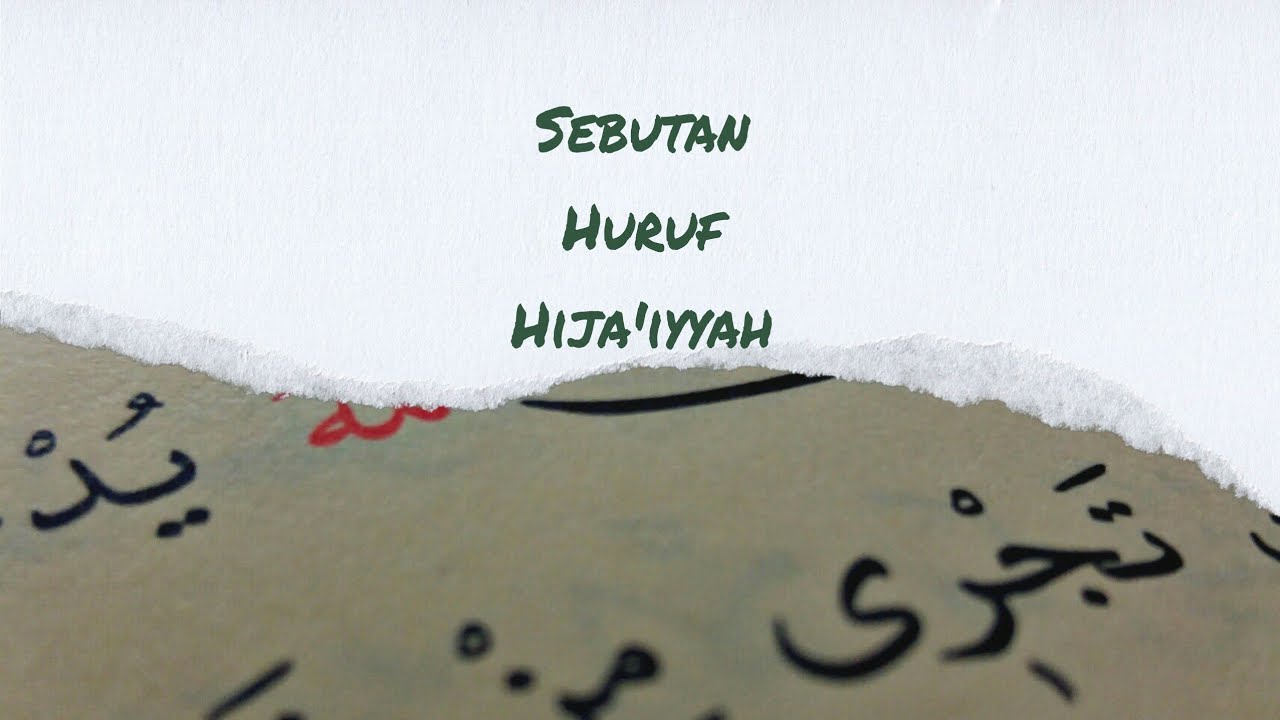 Sebutan
Huruf
Hija'iyyah
يُدْ
تَجْرِى مِنْ